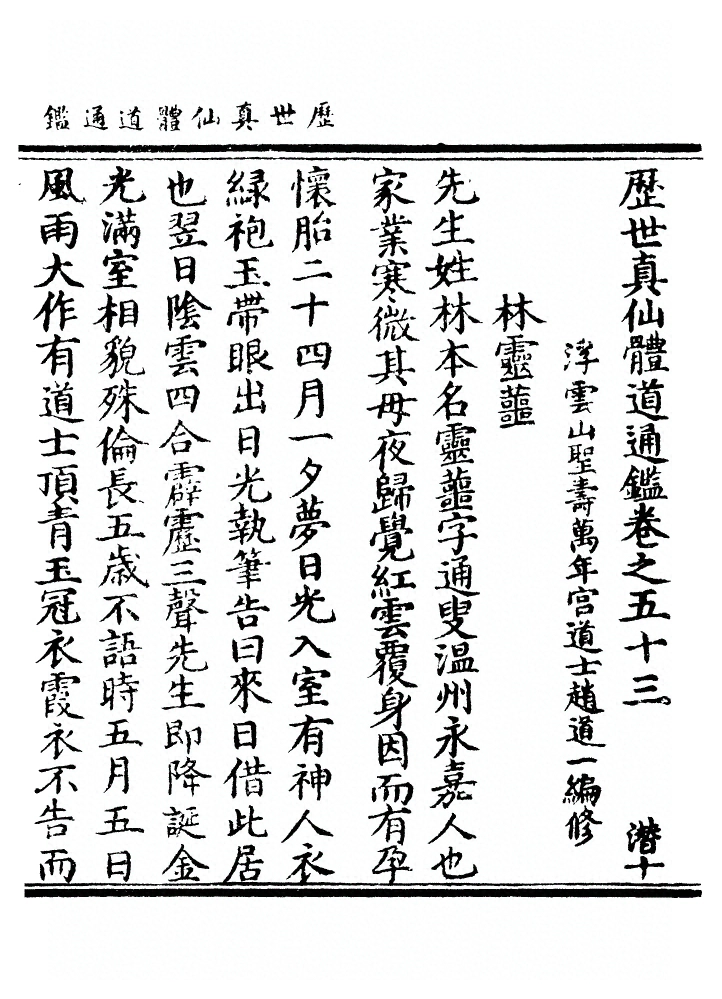 歷世真仙體道通鑑
歷世真仙體道通鑑卷之五十三 潛十
浮雲山聖壽萬年宮道士趙道一編修
林靈蘁
先生姓林本名靈蘁字通叟温州永嘉人也
家業寒微其母夜歸覺紅雲覆身因而有孕
懷胎二十四月一夕夢日光入室有神人衣
緑袍玉帶眼出日光執筆告曰來日借此居
也翌日陰雲四合霹靂三聲先生即降誕金
光滿室相貌殊倫長五歲不語時五月五日
風雨大作有道士頂青玉冠衣霞衣不告而